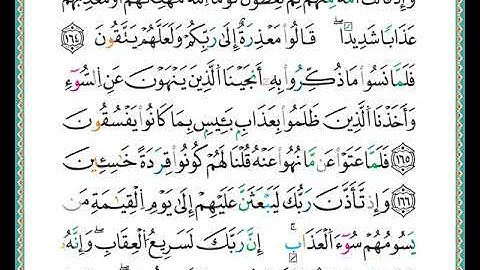 وَإِذْ قَالَتْ أُمَّةٌ مِّنْهُمْ لِمَ تَعِظُونَ قَوْمًا ٱللَّهُ مُهْلِكُهُمْ أَوْ مُعَذِّبُهُمْ
عَذَابًا شَدِيدًا ۖ قَالُوا۟ مَعْذِرَةً إِلَىٰ رَبِّكُمْ وَلَعَلَّهُمْ يَتَّقُونَ ﴿١٦٤﴾
فَلَمَّا نَسُوا۟ مَا ذُكِّرُوا۟ بِهِۦٓ أَنجَيْنَا ٱلَّذِينَ يَنْهَوْنَ عَنِ ٱلسُّوٓءِ
وَأَخَذْنَا ٱلَّذِينَ ظَلَمُوا۟ بِعَذَابٍۭ بَـِٔيسٍۭ بِمَا كَانُوا۟ يَفْسُقُونَ
﴿١٦٥﴾ فَلَمَّا عَتَوْا۟ عَن مَّا نُهُوا۟ عَنْهُ قُلْنَا لَهُمْ كُونُوا۟ قِرَدَةً خَـٰسِـِٔينَ
﴿١٦٦﴾ وَإِذْ تَأَذَّنَ رَبُّكَ لَيَبْعَثَنَّ عَلَيْهِمْ إِلَىٰ يَوْمِ ٱلْقِيَـٰمَةِ مَن
يَسُومُهُمْ سُوٓءَ ٱلْعَذَابِ ۗ إِنَّ رَبَّكَ لَسَرِيعُ ٱلْعِقَابِ ۖ وَإِنَّهُۥ